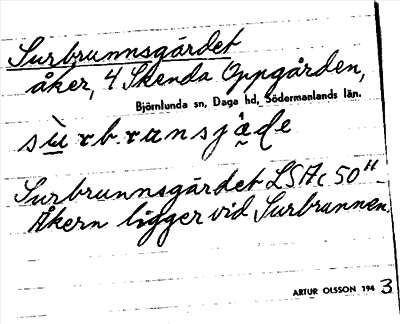 Surbrunnsgärdet
åker, 4 Skenda Oppgården,
Björnlunda sn, Daga hd, Södermanlands län.
sùrbrunsjäde
Surbrunnsgärdet LSA c 50"
Åkern ligger vid Surbrunnen.
ARTUR OLSSON 1943